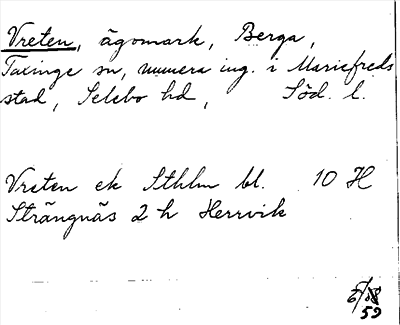 Vreten, ägomark, Berga,
Taxinge sn, numera ing. i Mariefreds
stad, Selebo hd, Söd. l.
Vreten ek Sthlm bl. 10 H
Strängnäs 2 h Herrvik
59